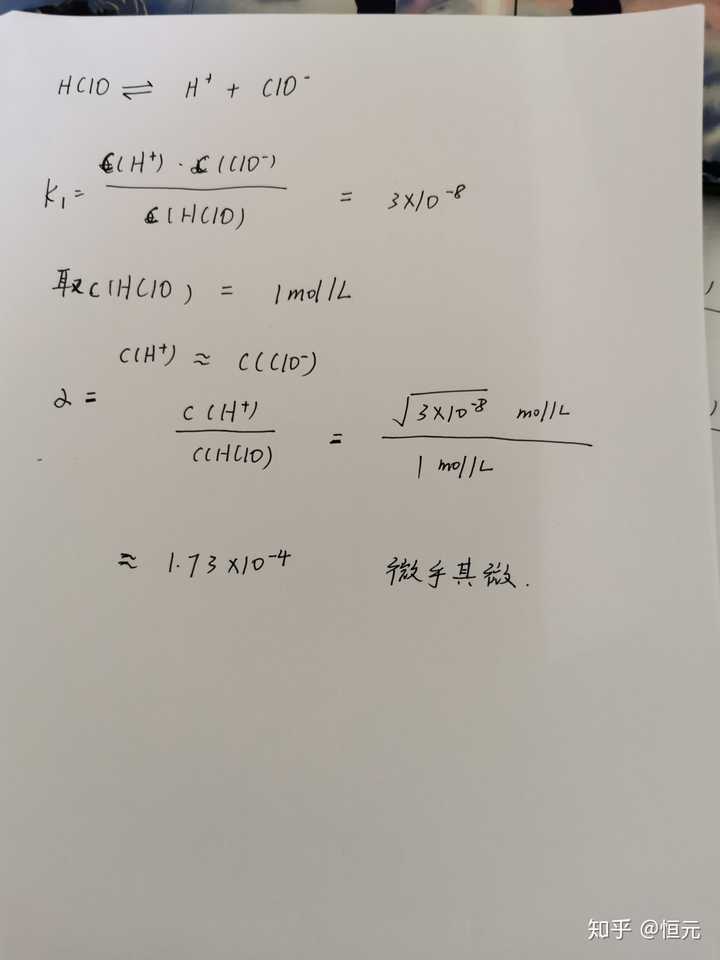 HClO ⇌ H⁺ + ClO⁻
K₁ = C(H⁺)·C(ClO⁻) / C(HClO) = 3×10⁻⁸
取C(HClO) = 1mol/L
C(H⁺) ≈ C(ClO⁻)
α = C(H⁺) / C(HClO) = √3×10⁻⁸ mol/L / 1 mol/L
≈ 1.73×10⁻⁴ 微乎其微.
知乎 @恒元